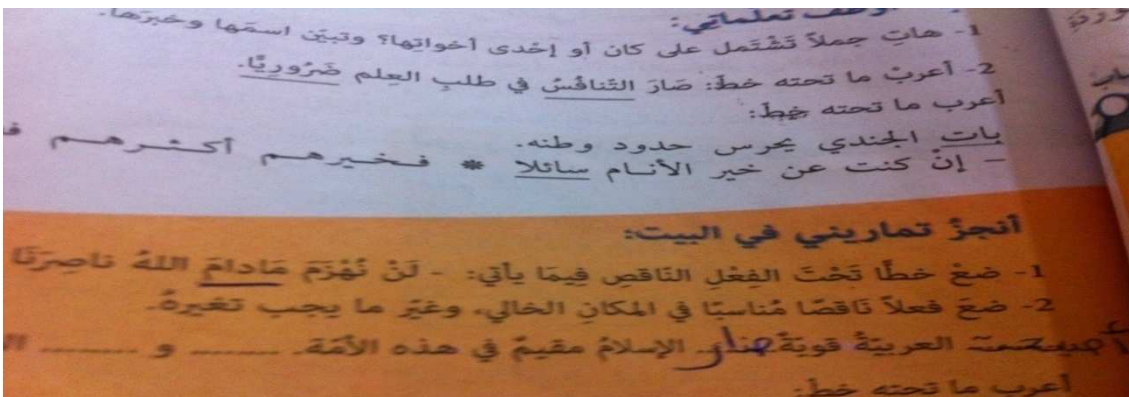 أوظف تعلماتي:
1- هاتِ جملاً تَشْتَمل على كان أو إحْدى أخواتِها؟ وتبيّن اسمَها وخبرَها.
2- أعربْ ما تحته خطّ: صَارَ التَنافُسُ في طلبِ العِلم ضَرُوريًّا.
أعرب ما تحته خِطّ:
بات الجندي يحرس حدود وطنه.
– إنْ كنت عن خير الأنام سائلا * فخيرهم أكثرهم
أنجزُ تماريني في البيت:
1- ضعْ خطًّا تَحْتَ الفِعْلِ النّاقصِ فِيمَا يأتي: - لَنْ نُهْزَمَ مَادامَ اللهُ ناصِرَنَا
2- ضعَ فعلاً نَاقصًا مُناسبًا في المكانِ الخالي، وغيّر ما يجب تغيرهُ.
العربيّةُ قويّةٌ صار الإسلامُ مقيمٌ في هذه الأمّة. ........ و ........
أعرب ما تحته خطّ: